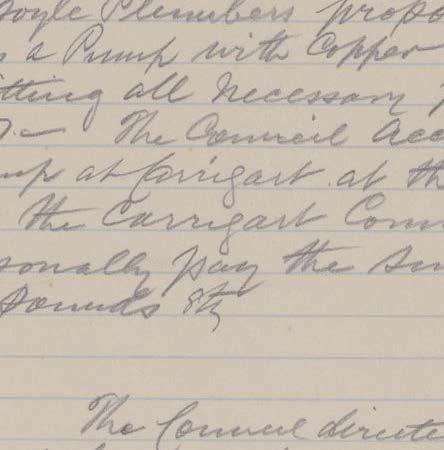 oyle Plumbers propo
a Pump with Copper
itting all necessary
7.— The Council Acc
mp at Carrigart at th
the Carrigart Com
sonally pay the su
Pounds Stg
The Council directe